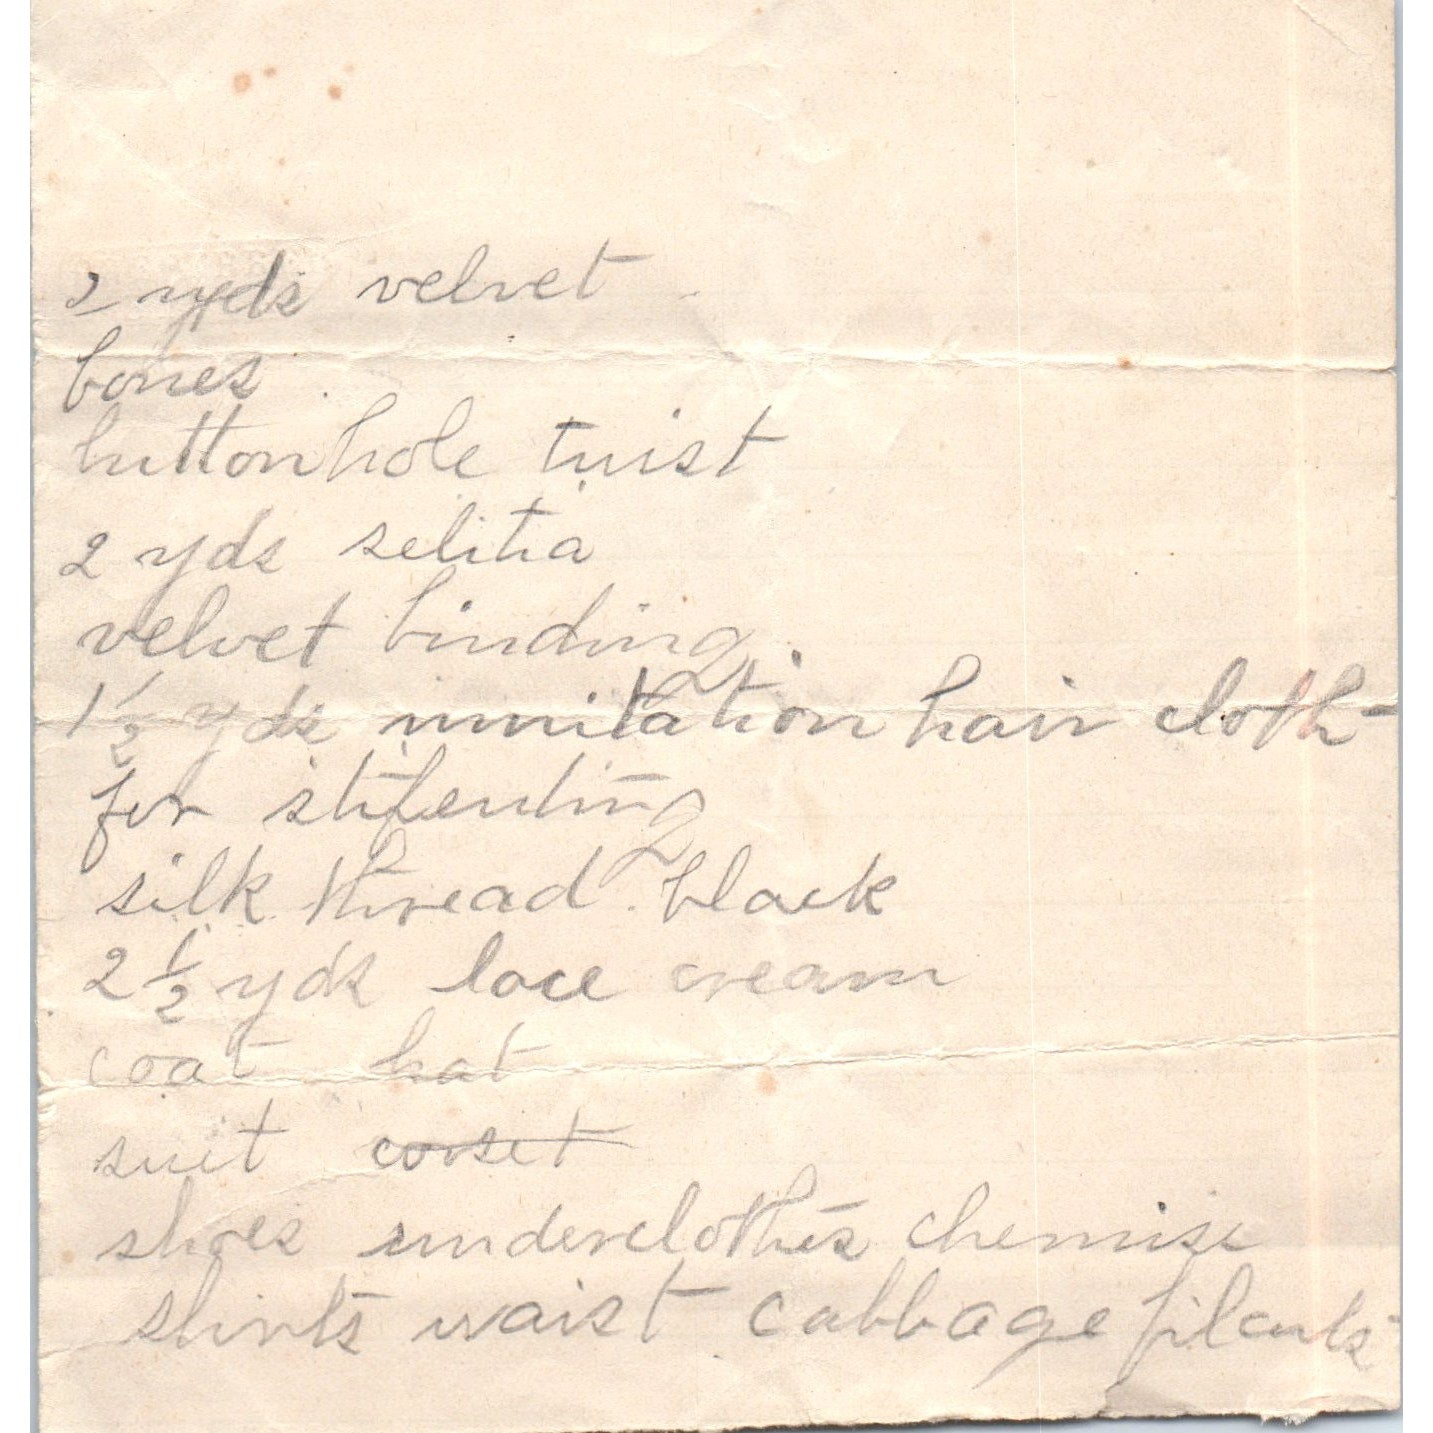 2 yds velvet
bones
buttonhole twist
2 yds selitia
velvet binding
1 1/2 yds immitation hair cloth
for stifending
silk thread black
2 1/2 yds lace cream
coat hat
suit corset
shoes underclothes chemise
shirts waist cabbage plants